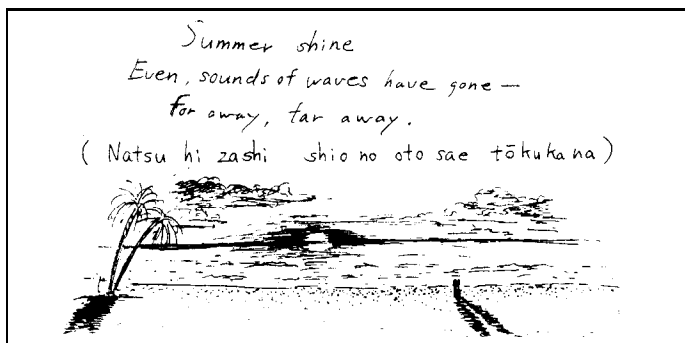 Summer shine
Even, sounds of waves have gone —
far away, far away.
( Natsu hi zashi shio no oto sae tōku kana )